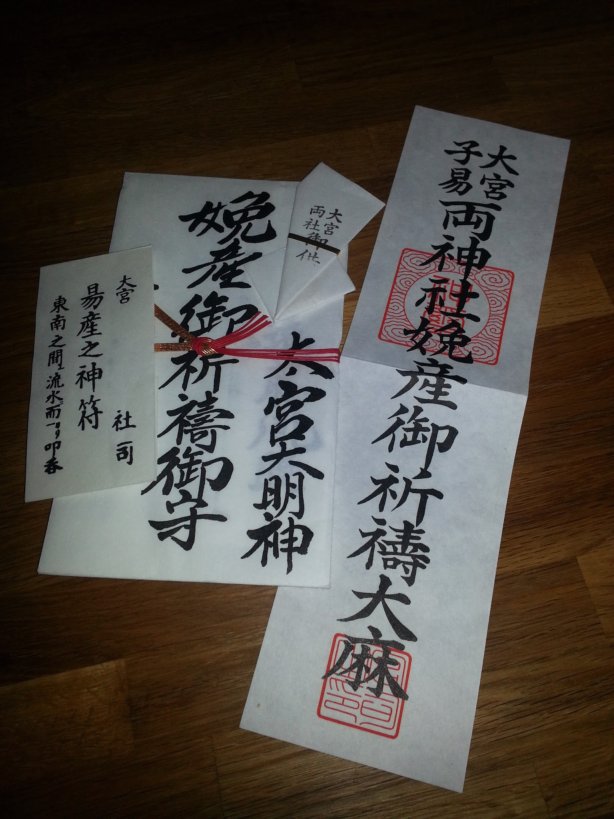 大宮
子易
両神社娩産御祈祷大麻
大宮
両社御供
大宮大明神
娩産御祈祷御守
大宮
社司
易産之神符
東南之間流水而一日叩呑